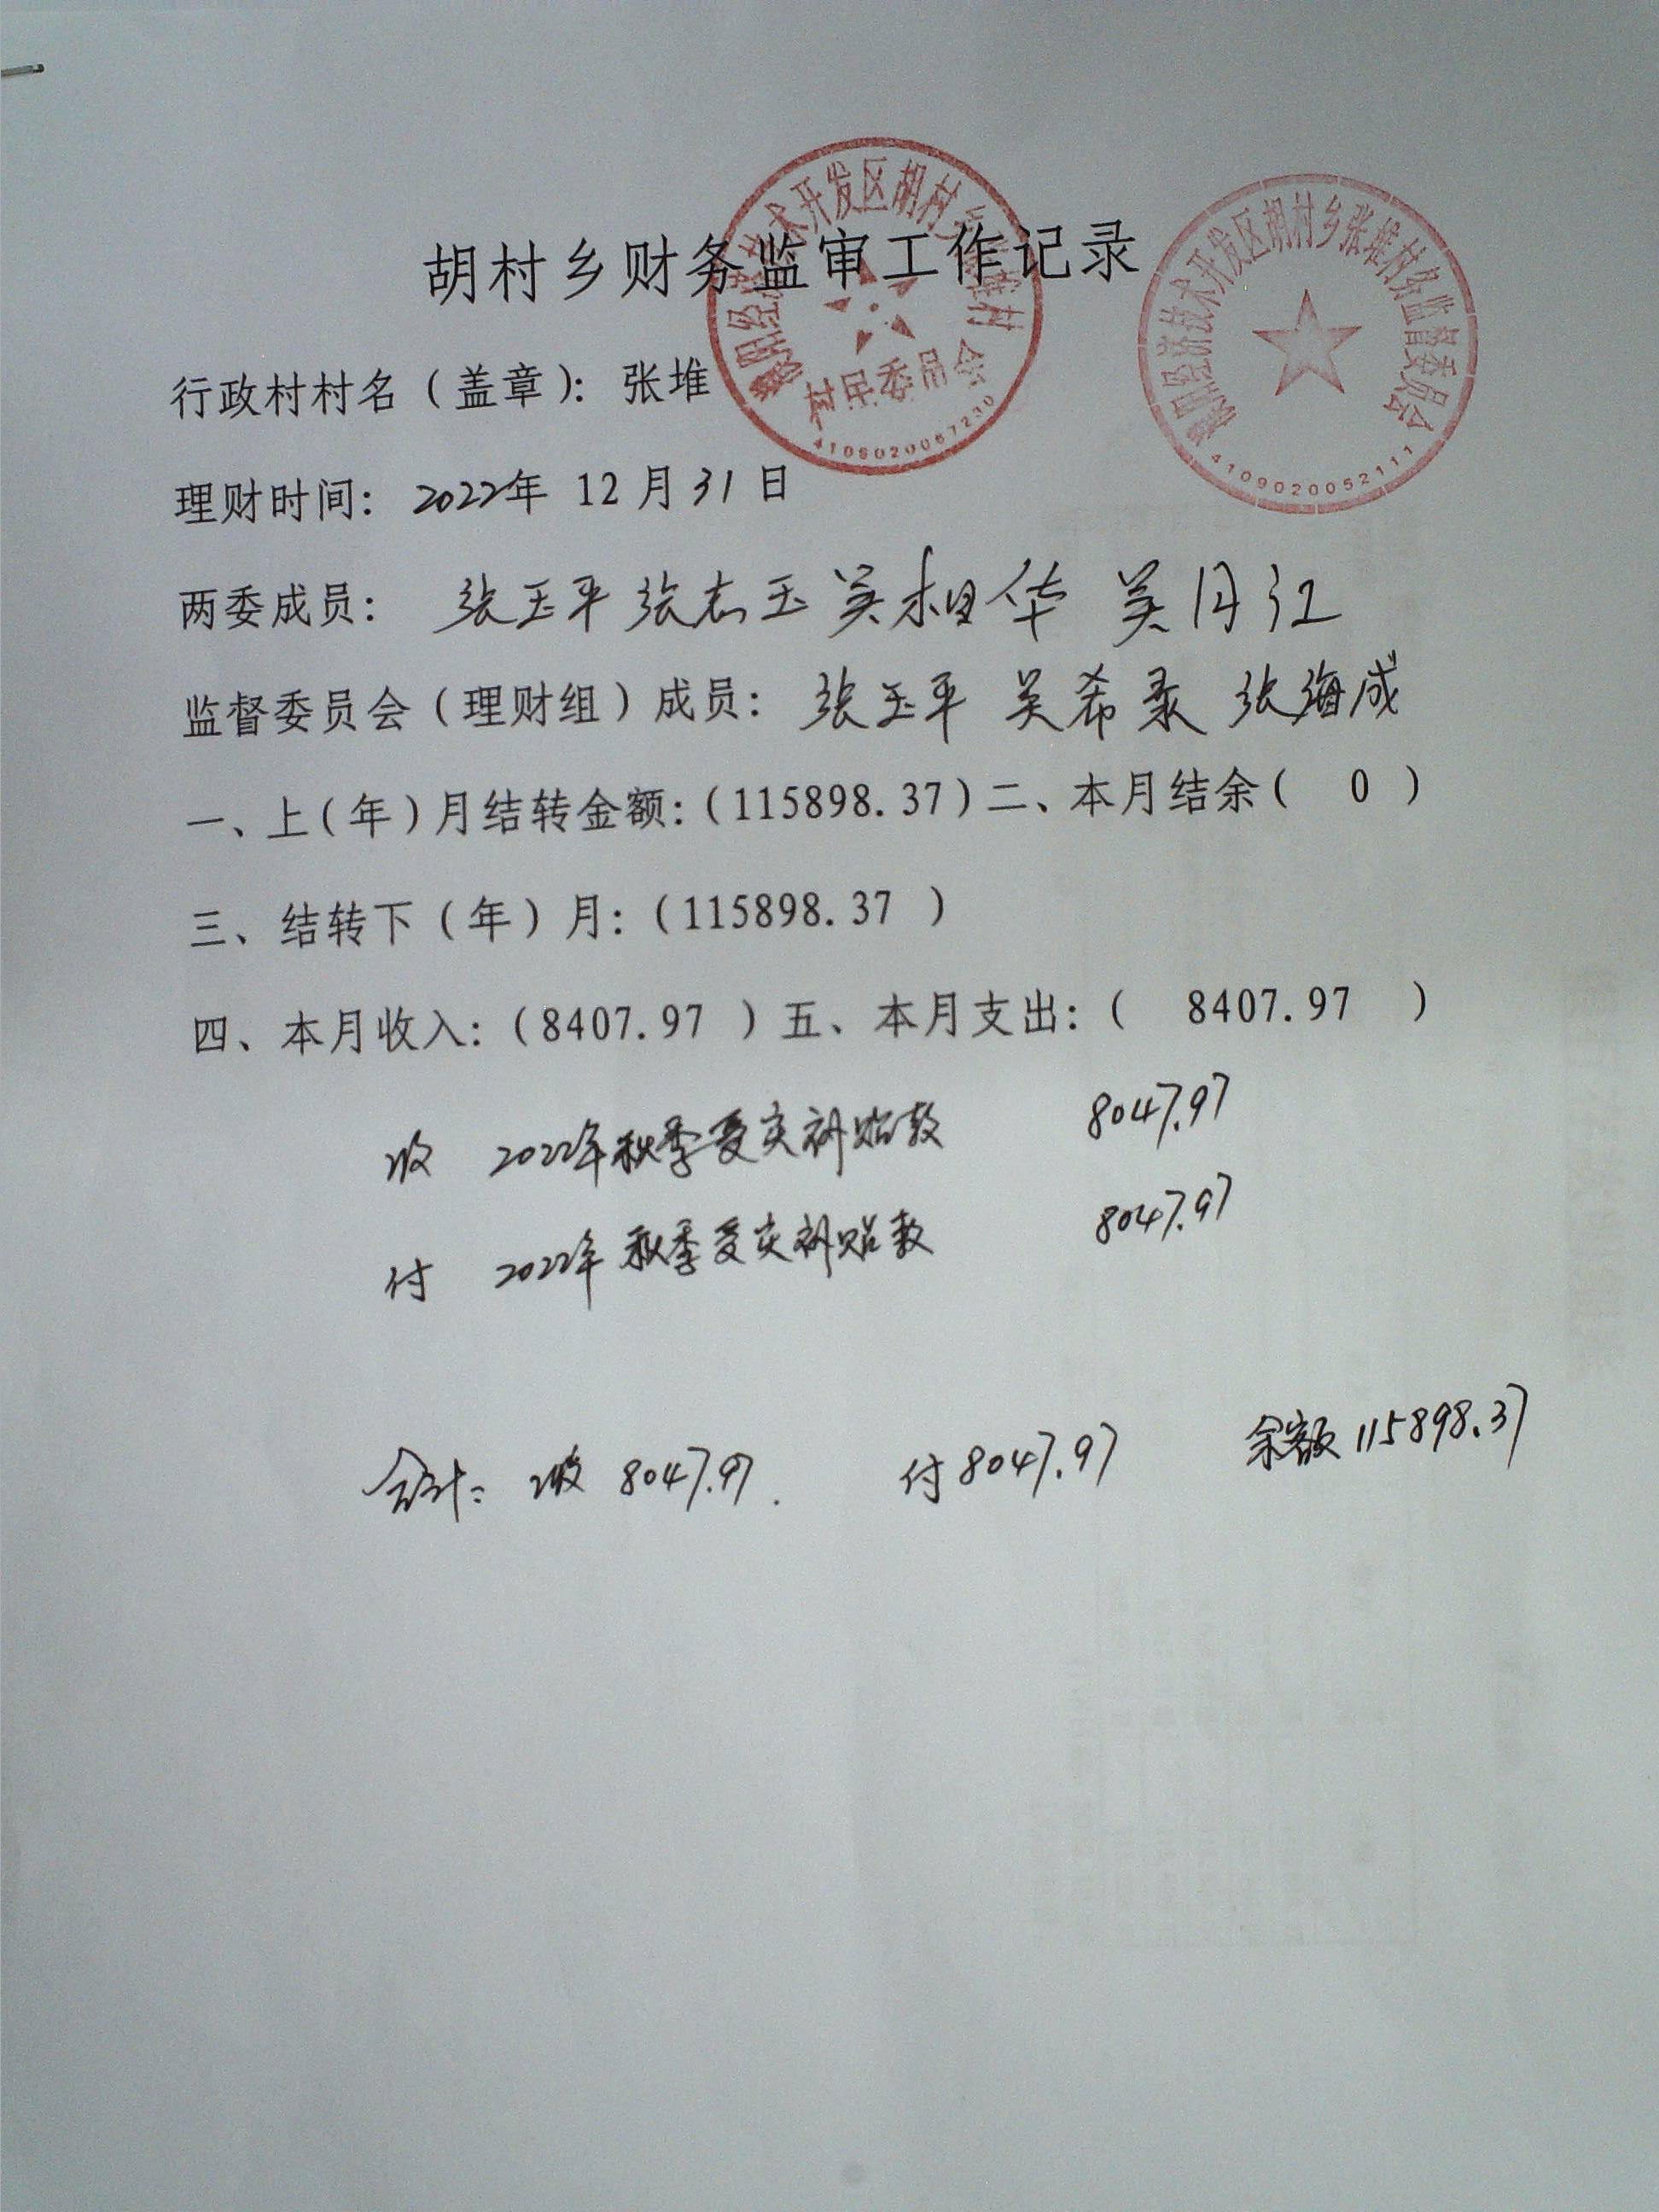 胡村乡财务监审工作记录
濮阳经济技术开发区胡村乡张堆村
村民委员会
4109020067230
濮阳经济技术开发区胡村乡张堆村务监督委员会
4109020052111
行政村村名（盖章）：张堆
理财时间：2022年 12 月 31 日
两委成员：张玉平 张志玉 吴相华 吴月江
监督委员会（理财组）成员：张玉平 吴希录 张海成
一、上（年）月结转金额：（115898.37）二、本月结余（ 0 ）
三、结转下（年）月：（115898.37 ）
四、本月收入：（8407.97 ）五、本月支出：（ 8407.97 ）
收 2022年秋季受灾补贴款 8047.97
付 2022年秋季受灾补贴款 8047.97
合计：收 8047.97. 付 8047.97 余额 115898.37